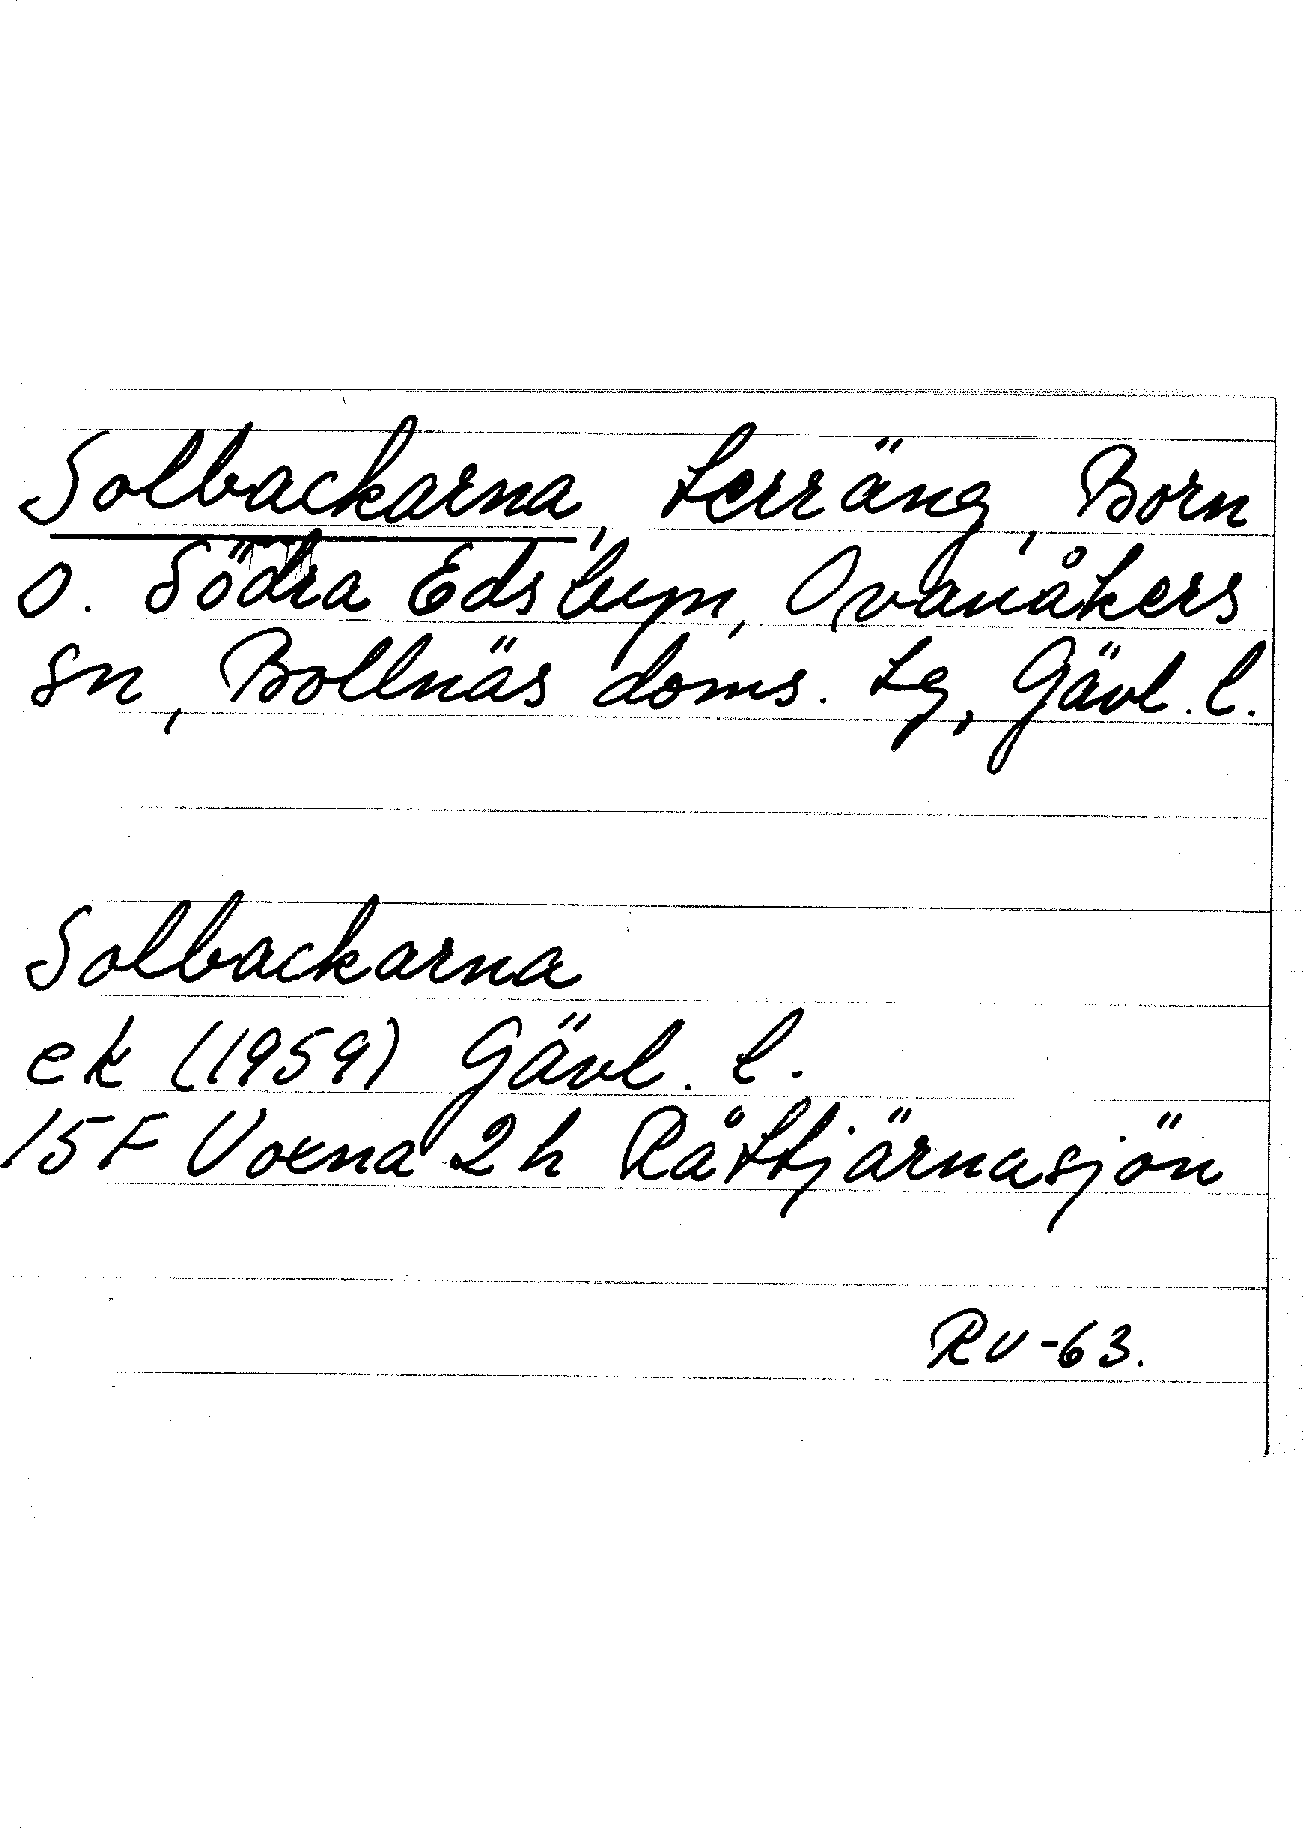 Solbackarna, terräng, Born
o. Södra Edsbyn, Ovanåkers
sn, Bollnäs doms. tg, Gävl. l.
Solbackarna
ek (1959) Gävl. l.
15F Voxna 2h Råttjärnasjön
RV-63.